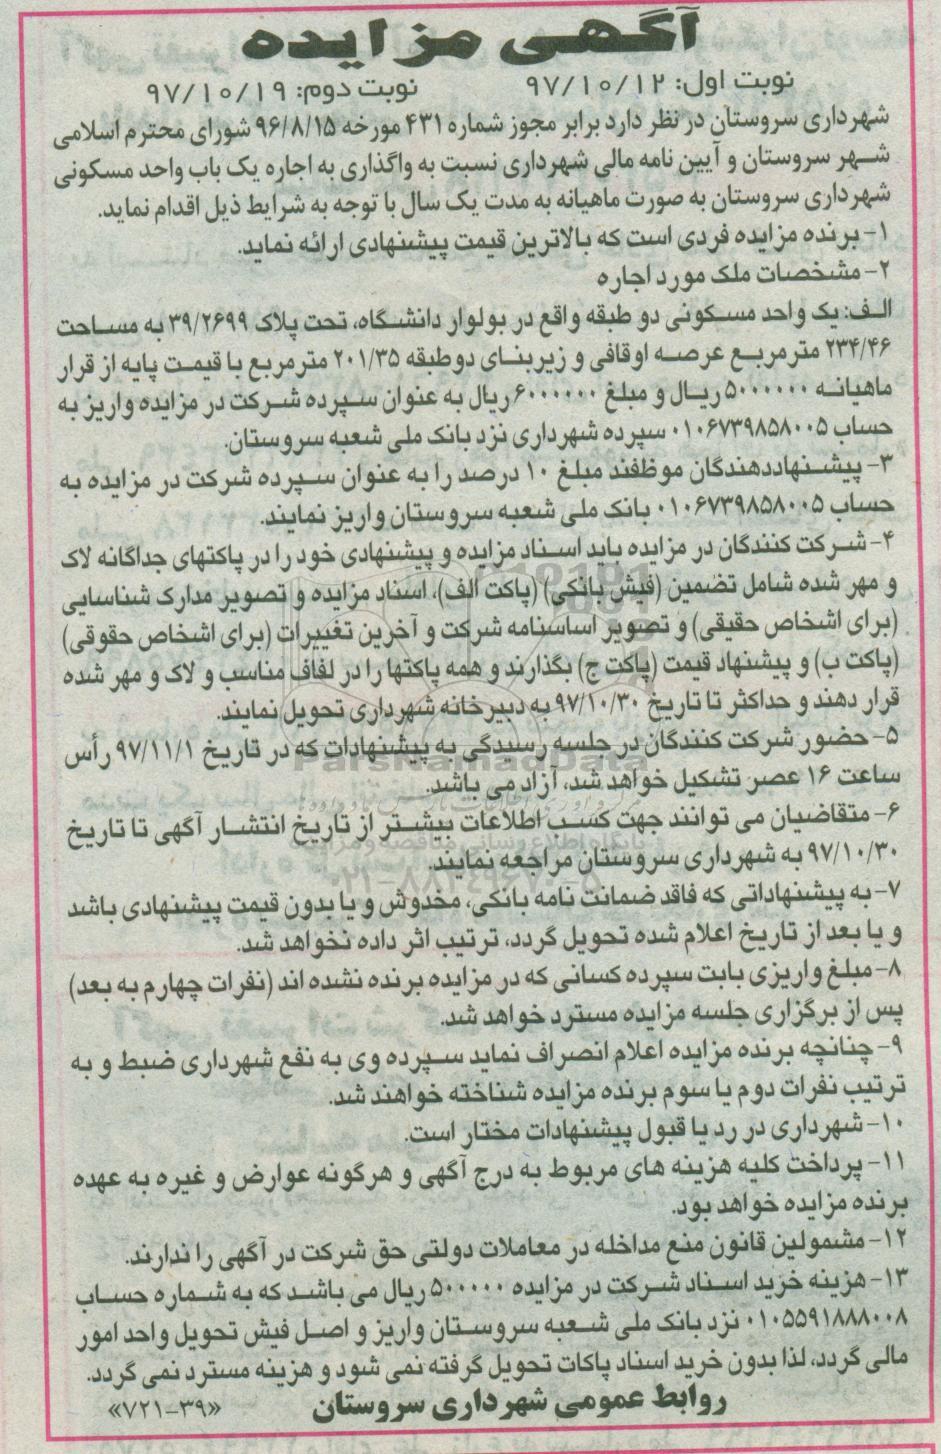 آگهی مزایده
نوبت اول: ۹۷/۱۰/۱۲ نوبت دوم: ۹۷/۱۰/۱۹
شهرداری سروستان در نظر دارد برابر مجوز شماره ۴۳۱ مورخه ۹۶/۸/۱۵ شورای محترم اسلامی
شهر سروستان و آیین نامه مالی شهرداری نسبت به واگذاری به اجاره یک باب واحد مسکونی
شهرداری سروستان به صورت ماهیانه به مدت یک سال با توجه به شرایط ذیل اقدام نماید.
۱- برنده مزایده فردی است که بالاترین قیمت پیشنهادی ارائه نماید.
۲- مشخصات ملک مورد اجاره
الف: یک واحد مسکونی دو طبقه واقع در بولوار دانشگاه، تحت پلاک ۳۹/۲۶۹۹ به مساحت
۲۳۴/۴۶ مترمربع عرصه اوقافی و زیربنای دوطبقه ۲۰۱/۳۵ مترمربع با قیمت پایه از قرار
ماهیانه ۵۰۰۰۰۰۰ ریال و مبلغ ۶۰۰۰۰۰۰ ریال به عنوان سپرده شرکت در مزایده واریز به
حساب ۰۱۰۶۷۳۹۸۵۸۰۰۵ سپرده شهرداری نزد بانک ملی شعبه سروستان.
۳- پیشنهاددهندگان موظفند مبلغ ۱۰ درصد را به عنوان سپرده شرکت در مزایده به
حساب ۰۱۰۶۷۳۹۸۵۸۰۰۵ بانک ملی شعبه سروستان واریز نمایند.
۴- شرکت کنندگان در مزایده باید اسناد مزایده و پیشنهادی خود را در پاکتهای جداگانه لاک
و مهر شده شامل تضمین (فیش بانکی) (پاکت الف)، اسناد مزایده و تصویر مدارک شناسایی
(برای اشخاص حقیقی) و تصویر اساسنامه شرکت و آخرین تغییرات (برای اشخاص حقوقی)
(پاکت ب) و پیشنهاد قیمت (پاکت ج) بگذارند و همه پاکتها را در لفاف مناسب و لاک و مهر شده
قرار دهند و حداکثر تا تاریخ ۹۷/۱۰/۳۰ به دبیرخانه شهرداری تحویل نمایند.
۵- حضور شرکت کنندگان در جلسه رسیدگی به پیشنهادات که در تاریخ ۹۷/۱۱/۱ رأس
ساعت ۱۶ عصر تشکیل خواهد شد، آزاد می باشد.
ParsNamadData
۶- متقاضیان می توانند جهت کسب اطلاعات بیشتر از تاریخ انتشار آگهی تا تاریخ
۹۷/۱۰/۳۰ به شهرداری سروستان مراجعه نمایند.
۷- به پیشنهاداتی که فاقد ضمانت نامه بانکی، مخدوش و یا بدون قیمت پیشنهادی باشد
و یا بعد از تاریخ اعلام شده تحویل گردد، ترتیب اثر داده نخواهد شد.
۸- مبلغ واریزی بابت سپرده کسانی که در مزایده برنده نشده اند (نفرات چهارم به بعد)
پس از برگزاری جلسه مزایده مسترد خواهد شد.
۹- چنانچه برنده مزایده اعلام انصراف نماید سپرده وی به نفع شهرداری ضبط و به
ترتیب نفرات دوم یا سوم برنده مزایده شناخته خواهند شد.
۱۰- شهرداری در رد یا قبول پیشنهادات مختار است.
۱۱- پرداخت کلیه هزینه های مربوط به درج آگهی و هرگونه عوارض و غیره به عهده
برنده مزایده خواهد بود.
۱۲- مشمولین قانون منع مداخله در معاملات دولتی حق شرکت در آگهی را ندارند.
۱۳- هزینه خرید اسناد شرکت در مزایده ۵۰۰۰۰۰ ریال می باشد که به شماره حساب
۰۱۰۵۵۹۱۸۸۸۰۰۸ نزد بانک ملی شعبه سروستان واریز و اصل فیش تحویل واحد امور
مالی گردد، لذا بدون خرید اسناد پاکات تحویل گرفته نمی شود و هزینه مسترد نمی گردد.
روابط عمومی شهرداری سروستان «۷۲۱-۳۹»